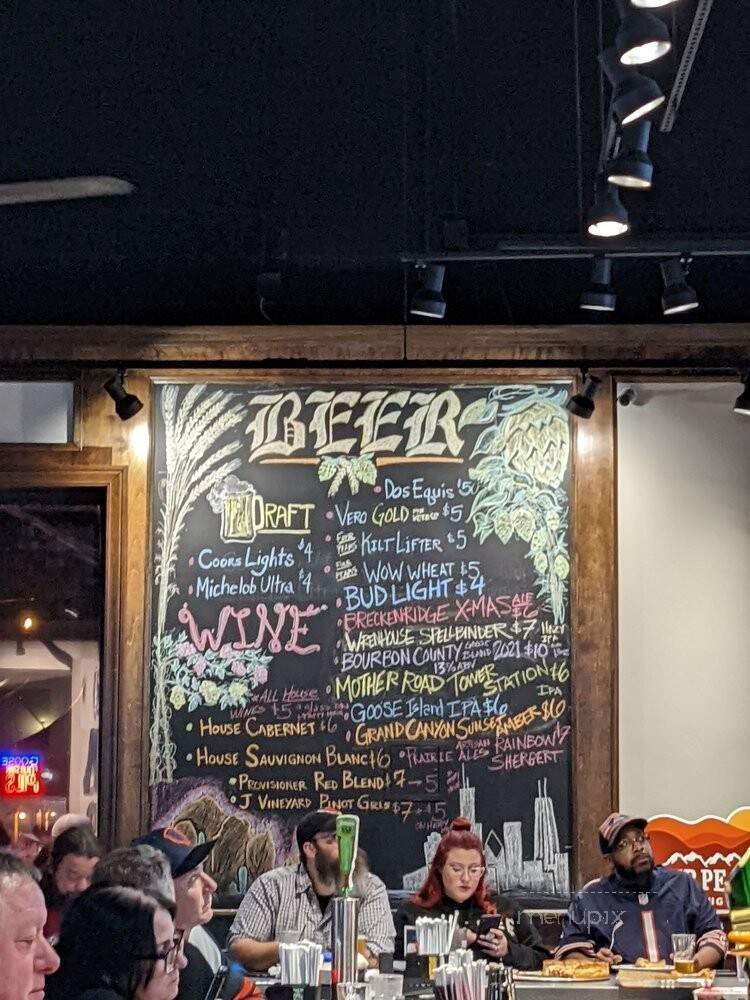 BEER
DRAFT
• Coors Lights $4
• Michelob Ultra $4
• Dos Equis $5
• Vero Gold $5
• Four Peaks Kilt Lifter $5
• Four Peaks Wow Wheat $5
• Bud Light $4
• Breckenridge X-Mas Ale $6
• Wrenhouse Spellbinder $7 Hazy IPA
• Bourbon County Goose Island 2021 $10
13% ABV
• Mother Road Tower Station $6
IPA
• Goose Island IPA $6
• Grand Canyon Sunset Amber $6
• Prairie Artisan Ales Rainbow $7
Sherbert
WINE
All House
Wines $5
• House Cabernet $6
• House Sauvignon Blanc $6
• Provisioner Red Blend $7 → 5
• J Vineyard Pinot Gris $7 → $5
GOOSE
menupix